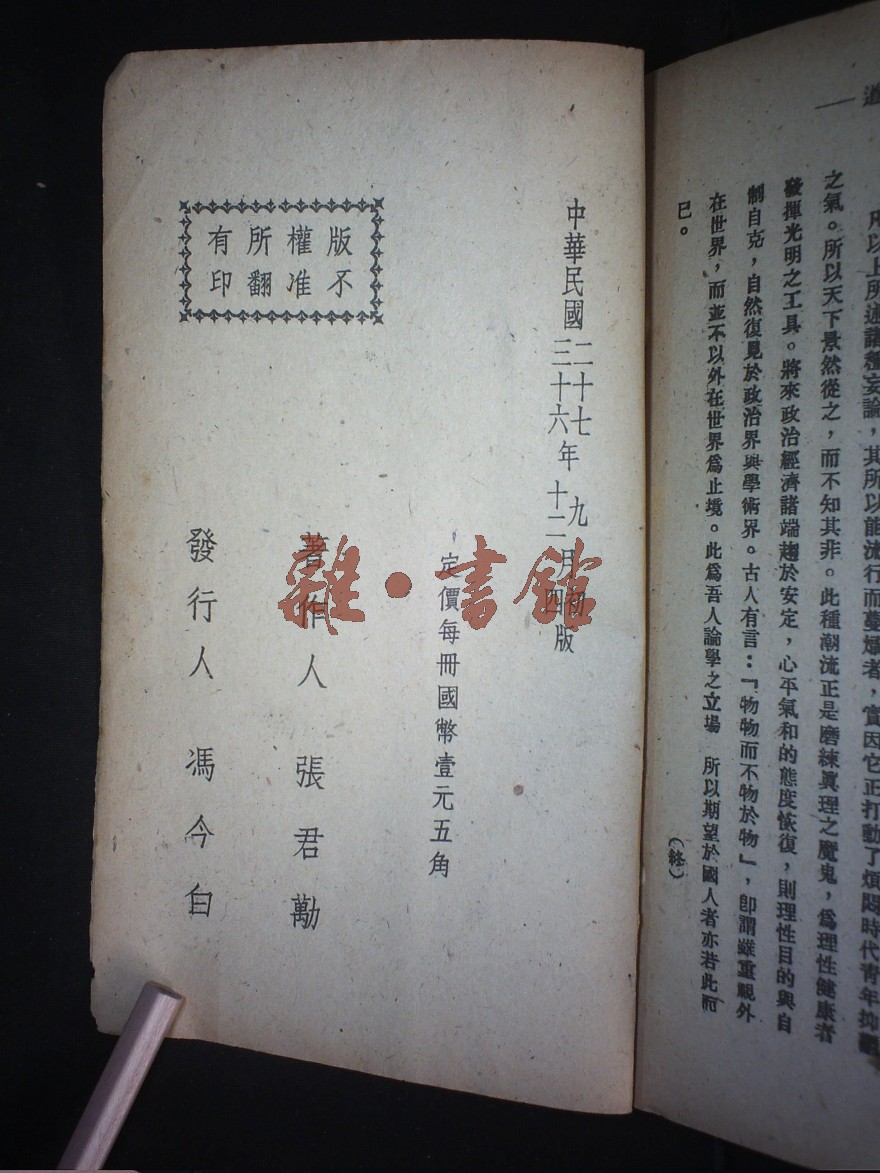 以上所述諸種妄論，其所以能流行而蔓熾者，實因它正打動了煩悶時代青年抑
之氣。所以天下景然從之，而不知其非。此種潮流正是磨練眞理之魔鬼，爲理性健康者
發揮光明之工具。將來政治經濟諸端趨於安定，心平氣和的態度恢復，則理性目的與自
制自克，自然復見於政治界與學術界。古人有言：『物物而不物於物』，卽謂雖重視外
在世界，而並不以外在世界爲止境。此爲吾人論學之立場　所以期望於國人者亦若此而
已。
（終）
中華民國二十七年九月初版
三十六年十二月四版
定價每冊國幣壹元五角
著作人 張君勱
發行人 馮今白
版權所有
不准翻印
雜·書館